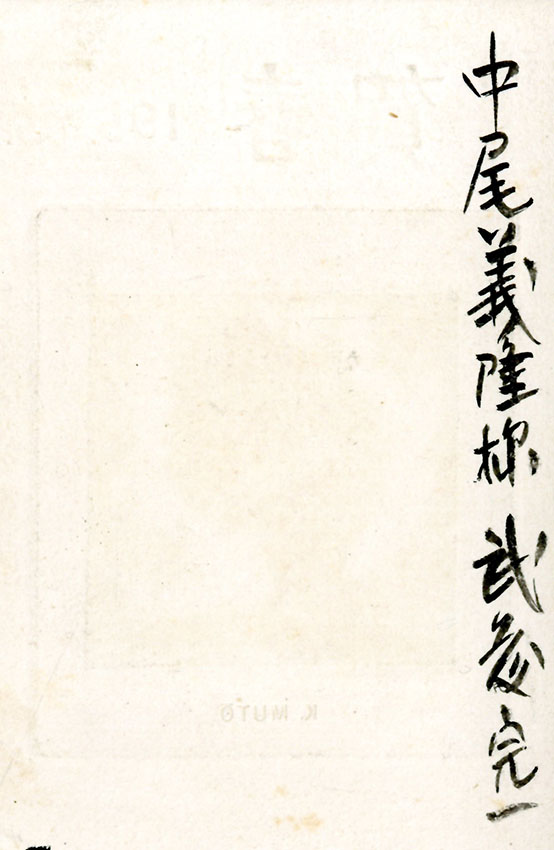 中尾義隆様 武藤完一
K. MUTO